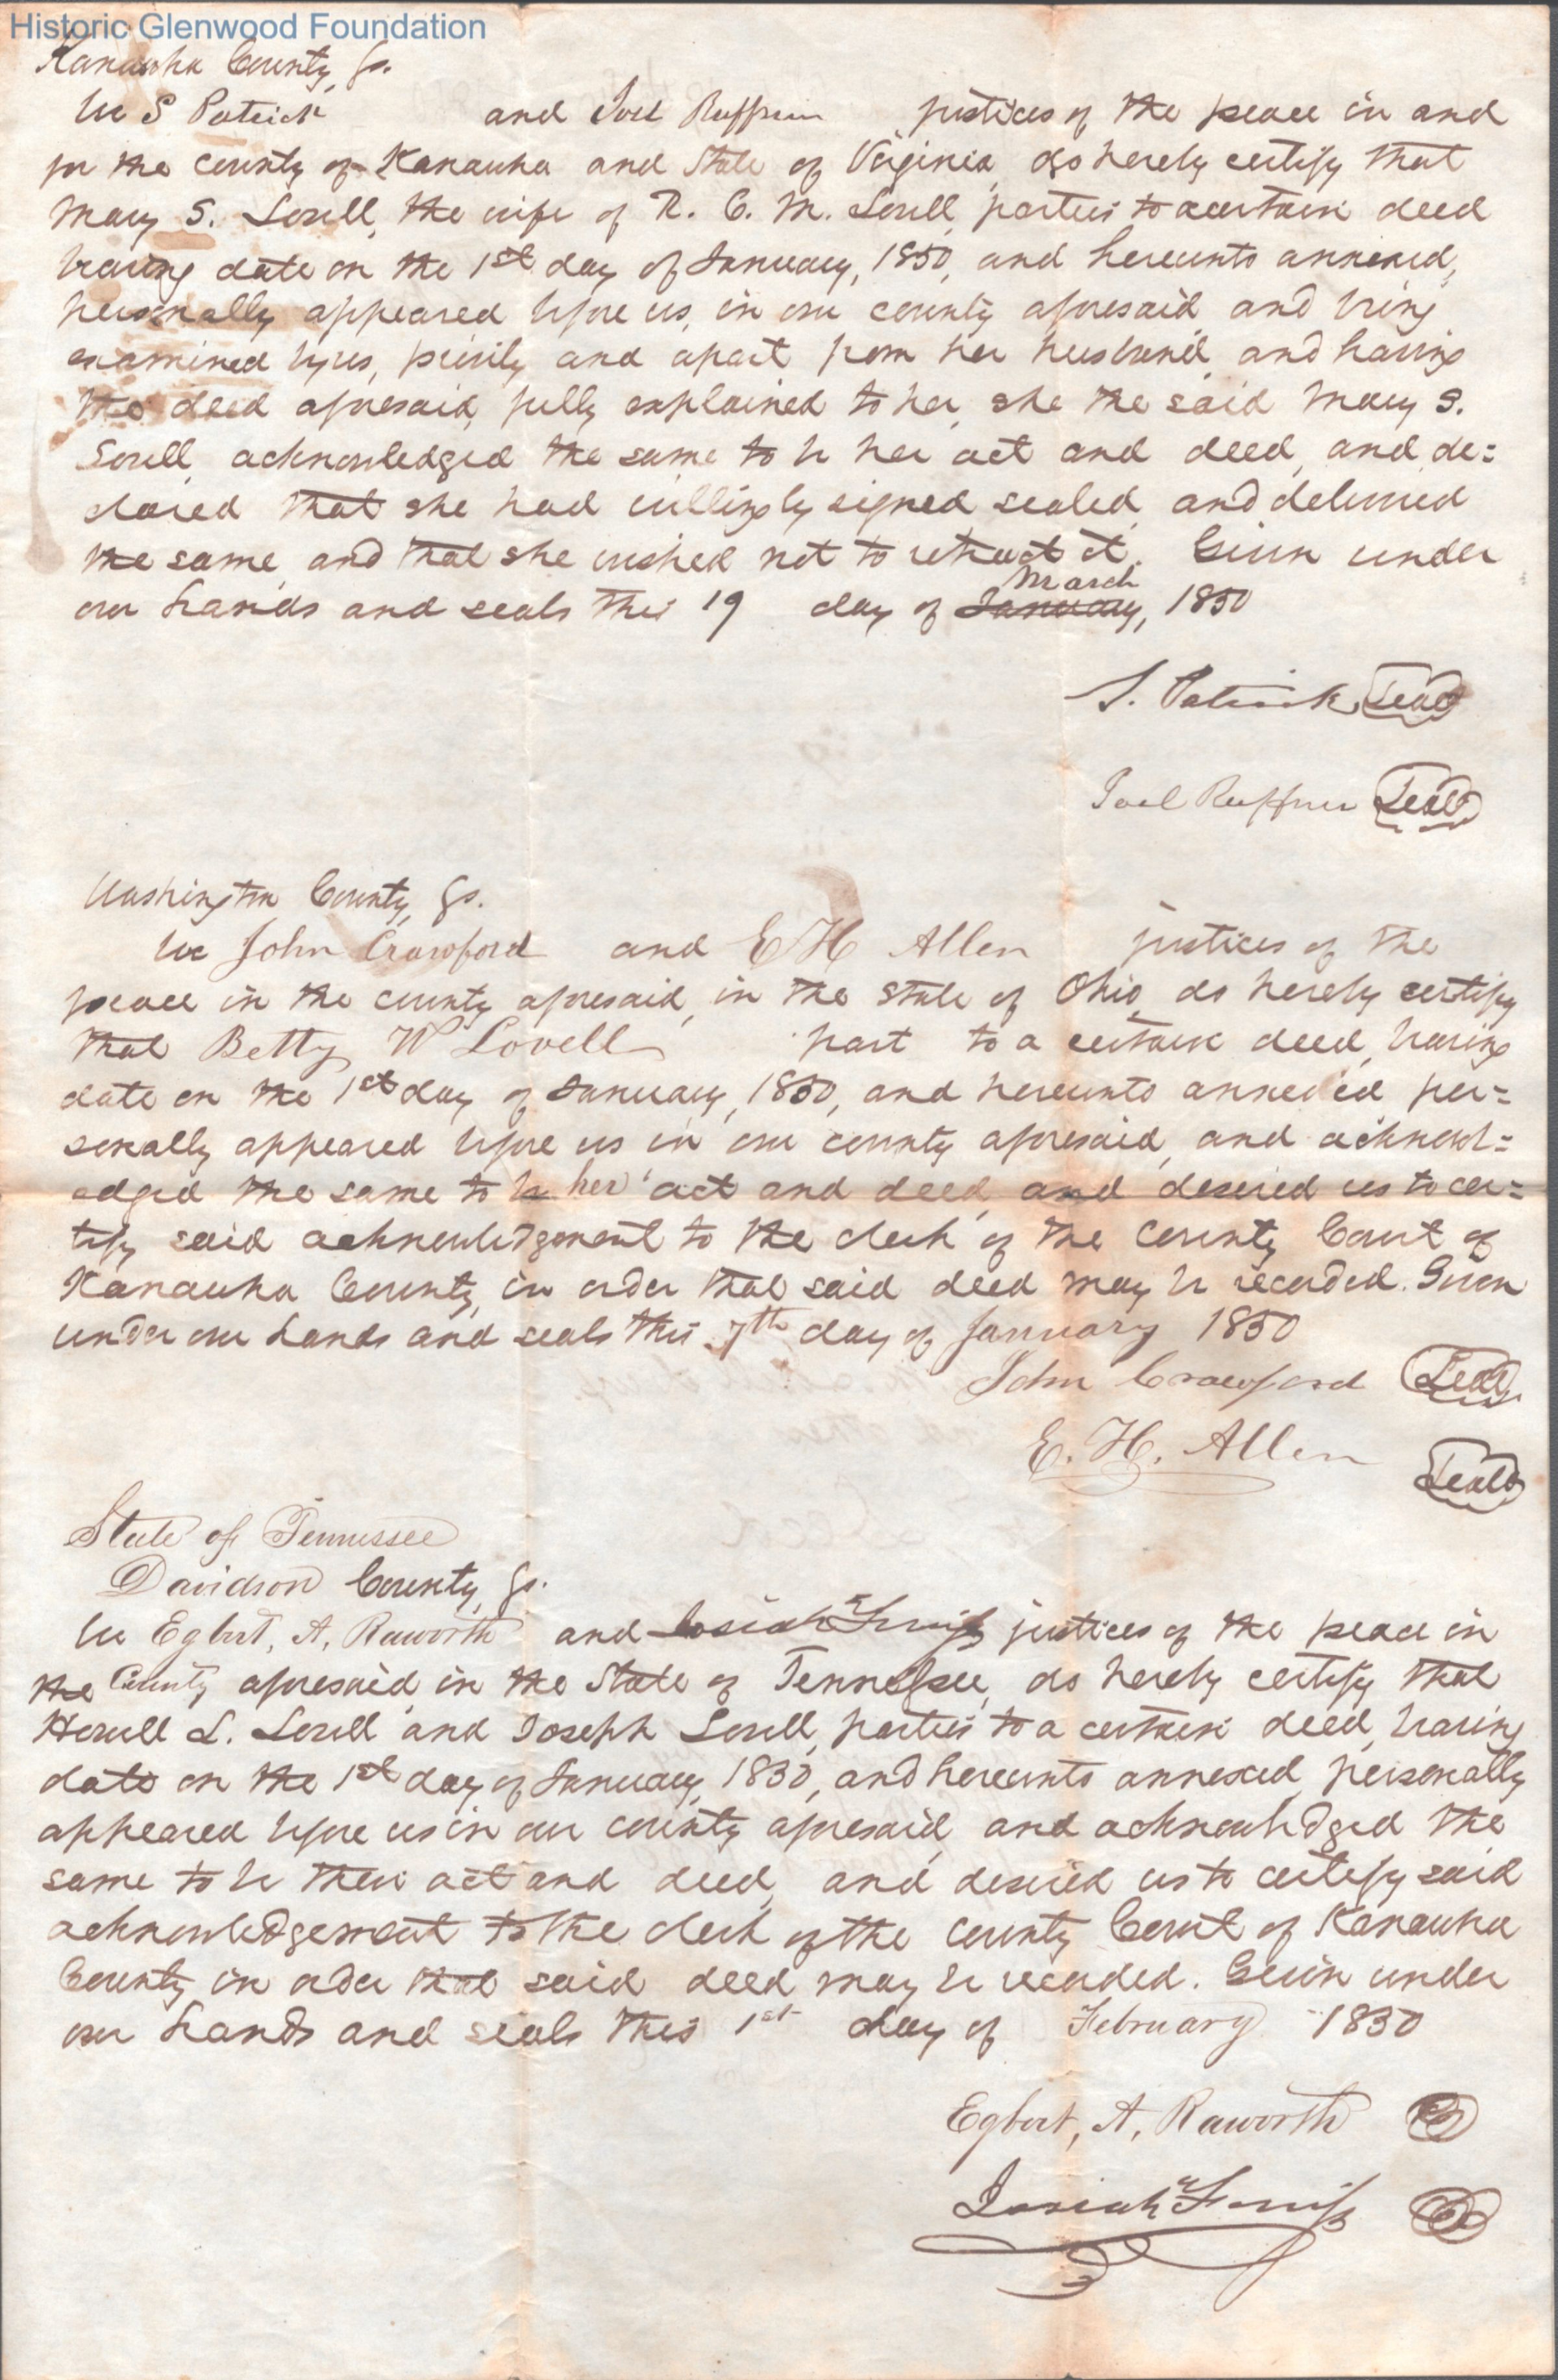 Historic Glenwood Foundation
Kanawha County, Ss.
We S Patrick and Joel Ruffner justices of the peace in and
for the county of Kanawha and State of Virginia, do hereby certify that
Mary S. Lovell, the wife of R. C. M. Lovell, parties to a certain deed
bearing date on the 1st day of January, 1850, and hereunto annexed,
personally appeared before us, in our county aforesaid and being
examined by us, privily and apart from her husband, and having
the deed aforesaid, fully explained to her, she the said Mary S.
Lovell acknowledged the same to be her act and deed, and de=
clared that she had willingly signed sealed, and delivered
the same, and that she wished not to retract it. Given under
our hands and seals this 19 day of January, March 1850
S. Patrick Seal
Joel Ruffner Seal
Washington County, Ss.
We John Crawford and E H Allen justices of the
peace in the county aforesaid, in the State of Ohio, do hereby certify
that Betty W Lovell part to a certain deed, bearing
date on the 1st day of January, 1850, and hereunto annexed, per=
sonally appeared before us in our county aforesaid, and acknowl=
edged the same to be her act and deed, and desired us to cer=
tify said acknowledgement to the clerk of the County Court of
Kanawha County, in order that said deed may be recorded. Given
under our hands and seals this 7th day of January 1850
John Crawford Seal
E. H. Allen Seal
State of Tennessee
Davidson County, Ss.
We Egbert, A, Raworth and Josiah Ferriss justices of the peace in
the County aforesaid, in the State of Tennessee, do hereby certify that
Howell L. Lovell and Joseph Lovell, parties to a certain deed, bearing
date on the 1st day of January, 1850, and hereunto annexed, personally
appeared before us in our county aforesaid, and acknowledged the
same to be their act and deed, and desired us to certify said
acknowledgement to the clerk of the County Court of Kanawha
County, in order that said deed may be recorded. Given under
our hands and seals this 1st day of February 1850
Egbert, A, Raworth
Josiah Ferriss